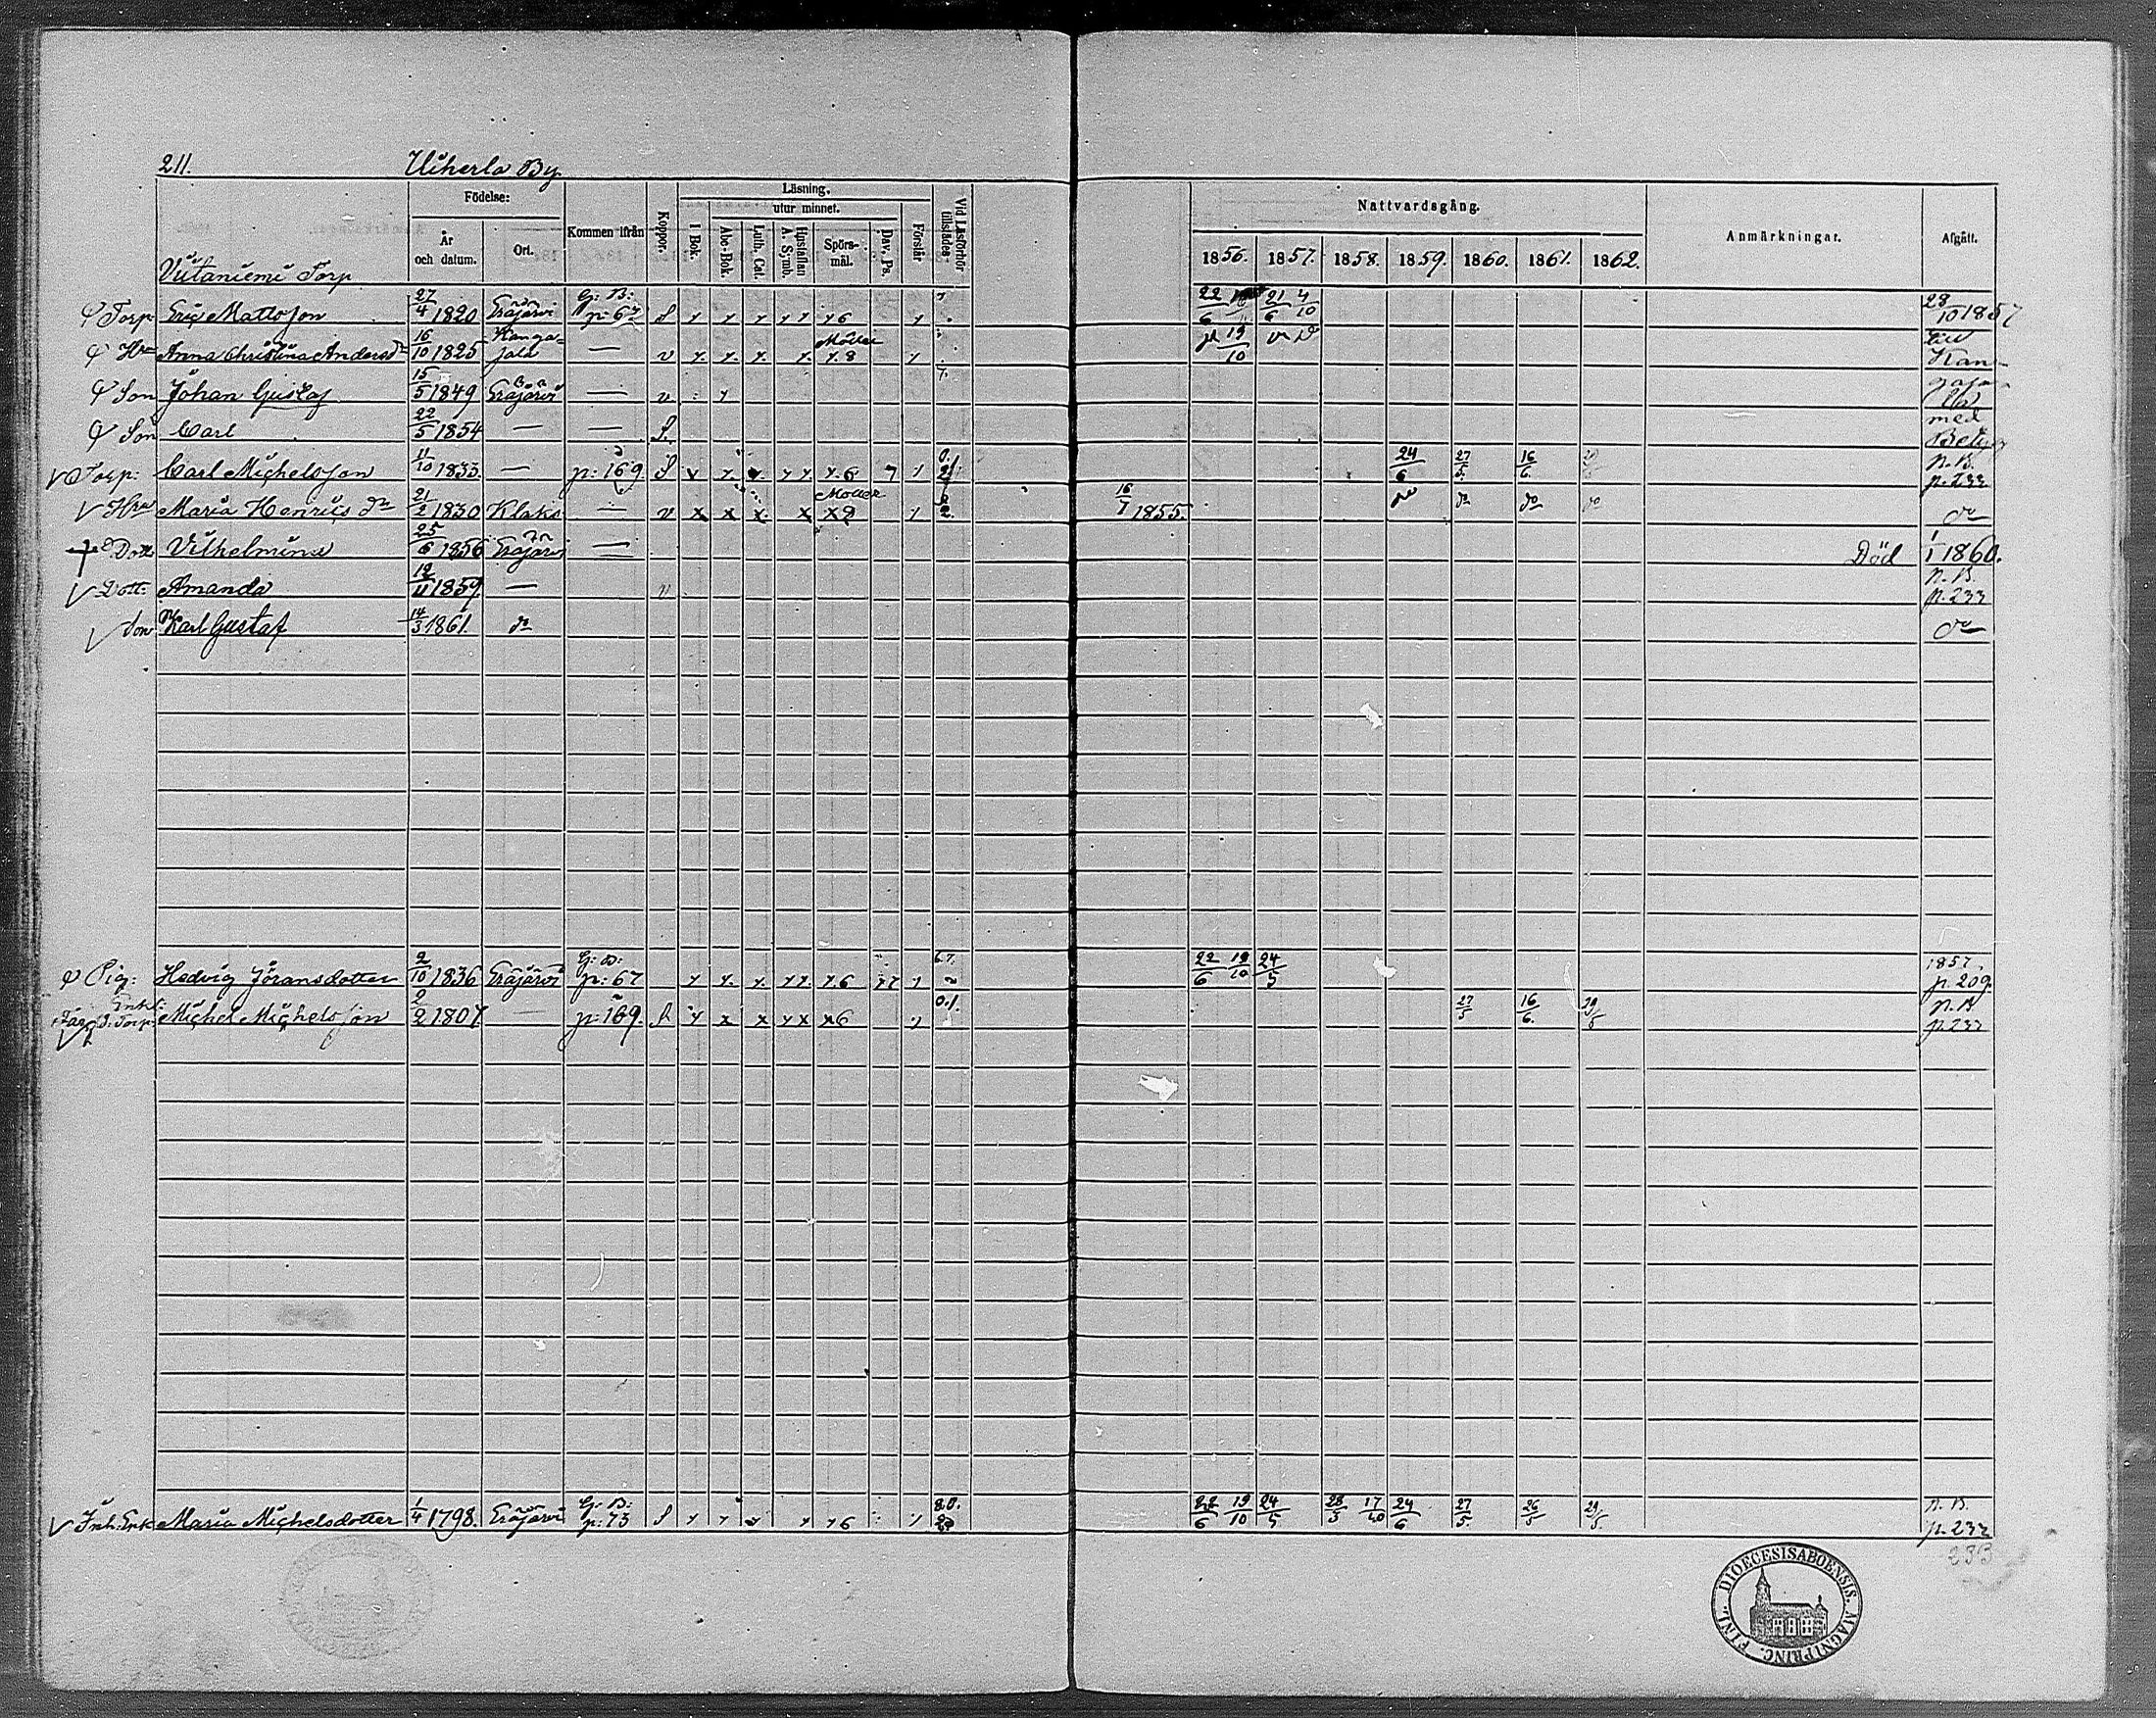 211. Uiherla By
Födelse: Kommen ifrån Koppor. Läsning. Vid Läsförhör tillstädes- Nattvardsgång. Anmärkningar. Afgått.
År och datum. Ort. I Bok. utur minnet. Förstår
Abc-Bok. Luth. Cat. Hustaflan A. Symb. Spörs-mål. Dav. Ps.
1856. 1857. 1858. 1859. 1860. 1861. 1862.
Viitaniemi Torp
Torp: Eric Mattsson 27/4 1820 Eräjärvi G: B: p: 67 S y y y y y y 6 y 22/6 21/6 4/10 28/10 1857
Hu Anna Christina Andersd:r 16/10 1825 Kangasala — v y. y. y. y. Möller y. 8 y 19/10 till Kan-
Son Johan Gustaf 15/5 1849 Eräjärvi — v y gasa-
Son Carl 22/5 1854 — — S. la med Betyg
Torp: Carl Michelsson 11/10 1833. — p: 169. S y y. y. y y y. 6 7 y 24/6 27/5. 16/6. N. B. p. 233
Hu Maria Henrics d:r 21/2 1830 Klaks — v x x x x Möller x 2 y 16/7 1855. do do do do
Dott Vilhelmina 25/6 1856 Eräjärvi — Död 1/1 1860.
Dott: Amanda 12/11 1859. — v N. B. p. 233
Son Karl Gustaf 14/3 1861. do do
Pig: Hedvig Jöransdotter 2/10 1836 Eräjärvi G: B: p: 67 y y. y. y y. y. 6 7 7 y 6.7. 22/6 19/10 24/5 1857. p. 209.
Enkl: Torp: Michel Michelsson 2/2 1807. — p: 169. S y x x y x x 6 y 0.1. 27/5 16/6. 29/5 N. B. p. 233
Inh. Enk Maria Michelsdotter 1/4 1798. Eräjärvi G: B: p: 73 S y y y y 6 y 8.0. 22/6 19/10 24/5 28/3 17/10 24/6 27/5. 26/5 29/5. N. B. p. 233
233
FINL. DIOECESIS ABOENSIS. MAGNI PRINC.